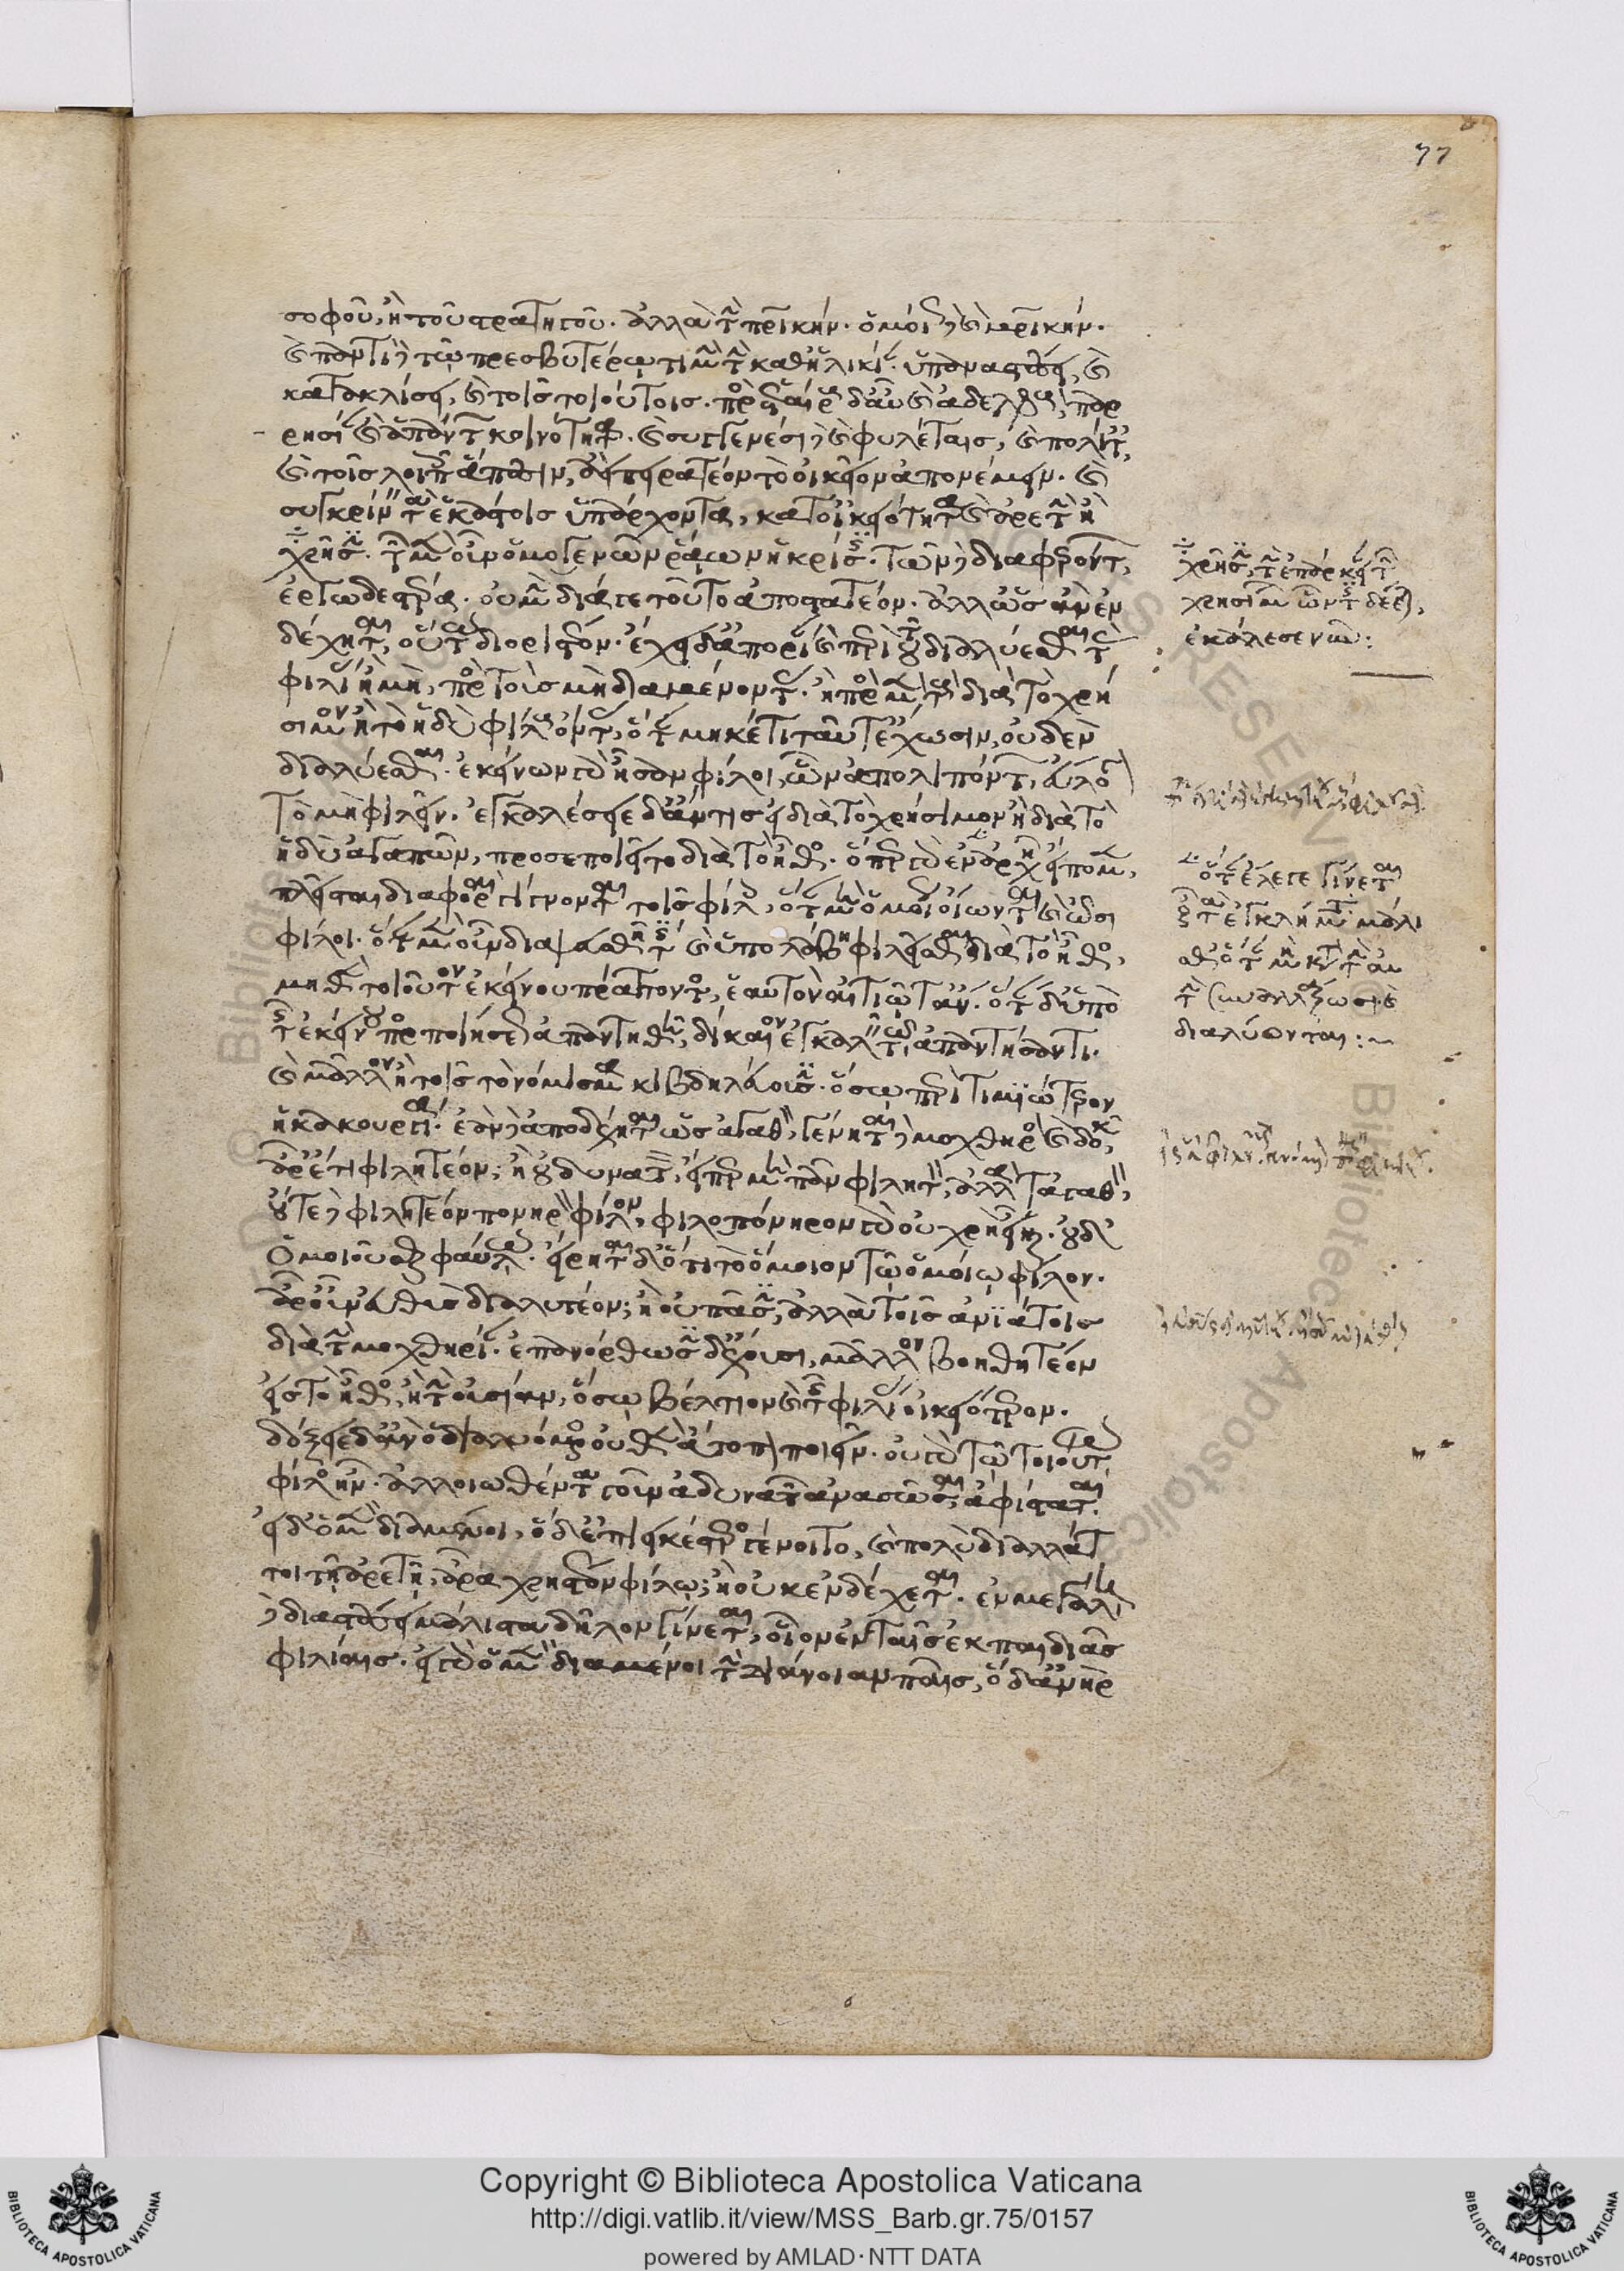 σοφοῦ, ἢ τοῦ στρατηγοῦ· ἀλλὰ τὴν πατρικήν· ὁμοίως δὲ καὶ μητρικήν·
καὶ παντὶ δὲ τῷ πρεσβυτέρῳ τιμὴν τὴν καθ' ἡλικίαν· ὑπαναστάσει, καὶ
κατακλίσει, καὶ τοῖς τοιούτοις· πρὸς ἑταίρους δ' αὖ καὶ ἀδελφούς, παρ
ρησίαν καὶ ἁπάντων κοινότητα· καὶ συγγενέσι δὲ καὶ φυλέταις, καὶ πολίταις,
καὶ τοῖς λοιποῖς ἅπασιν, ἀεὶ πειρατέον τὸ οἰκεῖον ἀπονέμειν· καὶ
συγκρίνειν τὰ ἑκάστοις ὑπάρχοντα, κατ' οἰκειότητα καὶ ἀρετὴν ἢ
χρῆσιν· τῶν μὲν οὖν ὁμογενῶν ῥάων ἡ κρίσις· τῶν δὲ διαφερόντων,
ἐργωδεστέρα· οὐ μὴν διά γε τοῦτο ἀποστατέον· ἀλλ' ὡς ἂν ἐν
δέχηται, οὕτως διοριστέον· ἔχει δ' ἀπορίαν καὶ περὶ τοῦ διαλύεσθαι τὰς
φιλίας ἢ μὴ, πρὸς τοὺς μὴ διαμένοντας· ἢ πρὸς μὲν τοὺς διὰ τὸ χρή
σιμον ἢ τὸ ἡδὺ φίλους ὄντας, ὅταν μηκέτι ταῦτ' ἔχωσιν, οὐδὲν
διαλύεσθαι· ἐκείνων γὰρ ἦσαν φίλοι, ὧν ἀπολιπόντων, εὔλογον
τὸ μὴ φιλεῖν· ἐγκαλέσειε δ' ἄν τις εἰ διὰ τὸ χρήσιμον ἢ διὰ τὸ
ἡδὺ ἀγαπῶν, προσεποιεῖτο διὰ τὸ ἦθος· ὅπερ γὰρ ἐν ἀρχῇ εἴπομεν,
πλεῖσται διαφοραὶ γίγνονται τοῖς φίλοις, ὅταν μὴ ὁμοίως οἴωνται καὶ ὦσι
φίλοι· ὅταν μὲν οὖν διαψευσθῇ τις καὶ ὑπολάβῃ φιλεῖσθαι διὰ τὸ ἦθος,
μηδὲν τοιοῦτον ἐκείνου πράττοντος, ἑαυτὸν αἰτιῷτ' ἄν· ὅταν δ' ὑπὸ
τῆς ἐκείνου προσποιήσεως ἀπατηθῇ, δίκαιον ἐγκαλεῖν τῷ ἀπατήσαντι·
καὶ μᾶλλον ἢ τοῖς τὸ νόμισμα κιβδηλεύουσιν· ὅσῳ περὶ τιμιώτερον
ἡ κακουργία· ἐὰν δὲ ἀποδέχηται ὡς ἀγαθόν, γένηται δὲ μοχθηρὸς καὶ δοκῇ,
ἆρ' ἔτι φιλητέον; ἢ οὐ δυνατόν, εἴπερ μὴ πᾶν φιλητόν, ἀλλὰ τἀγαθόν,
οὔτε δὲ φιλητέον πονηρὸν φίλον, φιλοπόνηρον γὰρ οὐ χρὴ εἶναι· οὐδ'
ὁμοιοῦσθαι φαύλῳ· εἴρηται δ' ὅτι τὸ ὅμοιον τῷ ὁμοίῳ φίλον·
ἆρ' οὖν εὐθὺς διαλυτέον; ἢ οὐ πᾶσιν, ἀλλὰ τοῖς ἀνιάτοις
διὰ τὴν μοχθηρίαν· ἐπανόρθωσιν δ' ἔχουσι, μᾶλλον βοηθητέον
εἰς τὸ ἦθος, ἢ τὴν οὐσίαν, ὅσῳ βέλτιον καὶ τῆς φιλίας οἰκειότερον·
δόξειε δ' ἂν ὁ διαλυόμενος οὐδὲν ἄτοπον ποιεῖν· οὐ γὰρ τῷ τοιούτῳ
φίλος ἦν· ἀλλοιωθέντα γοῦν ἀδυνατῶν ἀνασῶσαι, ἀφίσταται·
εἰ δ' ὁ μὲν διαμένοι, ὁ δ' ἐπιεικέστερος γένοιτο, καὶ πολὺ διαλλάτ
τοι τῇ ἀρετῇ, ἆρα χρηστέον φίλῳ; ἢ οὐκ ἐνδέχεται· ἐν μεγάλῃ
δὲ διαστάσει μάλιστα δῆλον γίνεται, οἷον ἐν ταῖς ἐκ παιδιᾶς
φιλίαις· εἰ γὰρ ὁ μὲν διαμένοι τὴν διάνοιαν παῖς, ὁ δ' ἀνὴρ
77
διαλύονται:
Copyright © Biblioteca Apostolica Vaticana
http://digi.vatlib.it/view/MSS_Barb.gr.75/0157
powered by AMLAD·NTT DATA
BIBLIOTECA APOSTOLICA VATICANA
BIBLIOTECA APOSTOLICA VATICANA